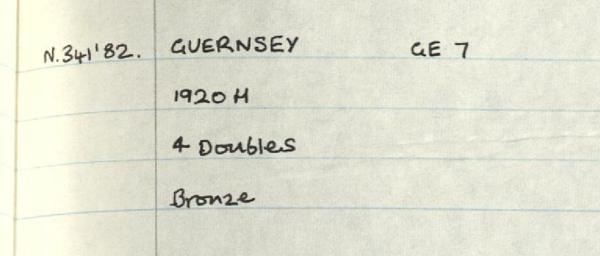 N.341'82. GUERNSEY GE 7
1920 H
4 Doubles
Bronze